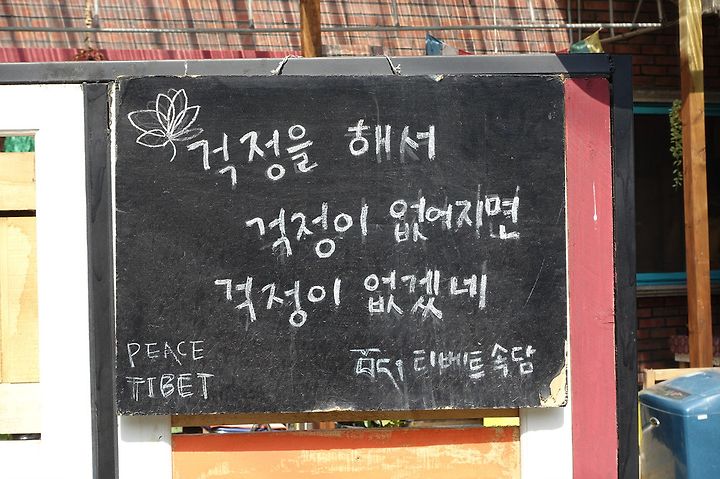 걱정을 해서
걱정이 없어지면
걱정이 없겠네
PEACE
TIBET
བོད། 티베트 속담